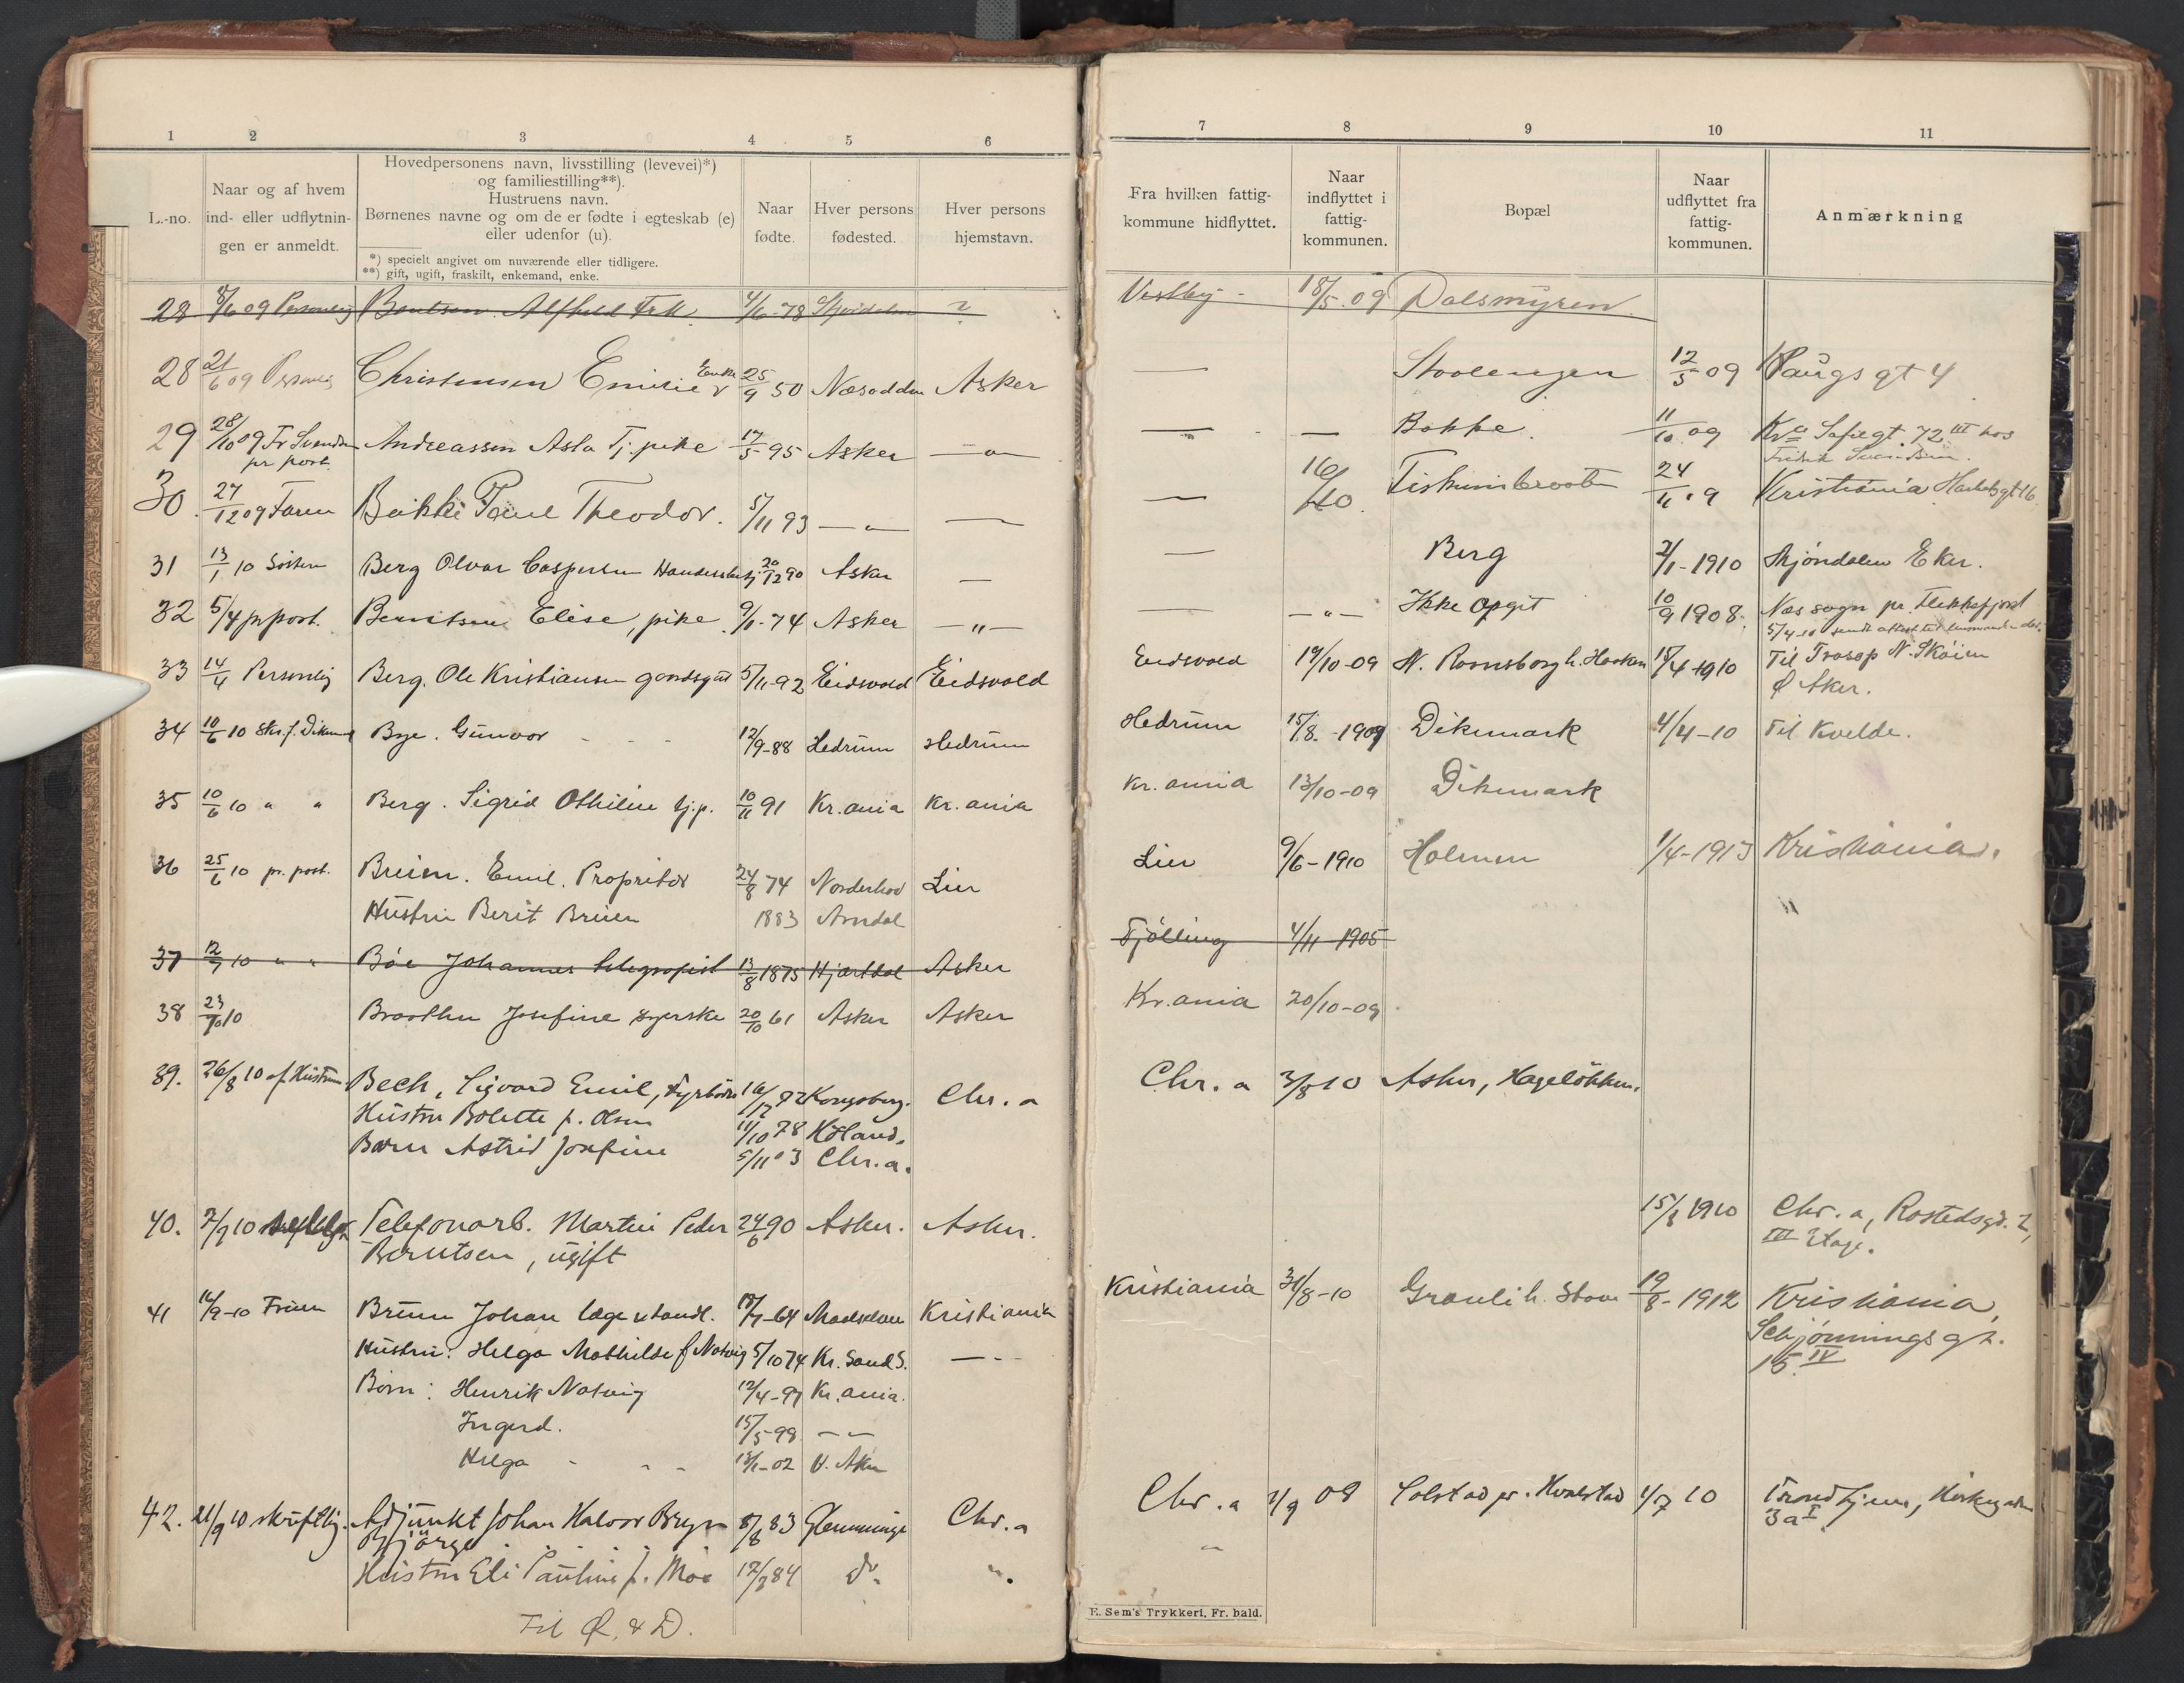 1 2 3 4 5 6 7 8 9 10 11
L.-no.
Naar og af hvem
ind- eller udflytnin-
gen er anmeldt.
Hovedpersonens navn, livsstilling (levevei)*)
og familiestilling**).
Hustruens navn.
Børnenes navne og om de er fødte i egteskab (e)
eller udenfor (u).
*) specielt angivet om nuværende eller tidligere.
**) gift, ugift, fraskilt, enkemand, enke.
Naar
fødte.
Hver persons
fødested.
Hver persons
hjemstavn.
Fra hvilken fattig-
kommune hidflyttet.
Naar
indflyttet i
fattig-
kommunen.
Bopæl
Naar
udflyttet fra
fattig-
kommunen.
Anmærkning
28 8/6 09 Personlig Alfhild Frk 4/6-78 ? Vestby - 18/5.09 Dalsmyren
28 21/6 09 Christensen Emilie Enke 25/9 50 Næsodden Asker — Stoolengen 12/5 09 Haugs gt 4
29 28/10 09 Fr Svendsen pr post. Andreassen Asta Tj. pike 17/5 95 Asker —"— — — Bakke. 11/10.09 Kra Sofiegt. 72 III hos
30. 27/12 09 Faren Bakke Paul Theodor. 5/11 93 —"— — — 24/11 09 Kristiania
31 13/1 10 Berg Olvar Caspersen 20/12 90 Asker — — Berg 2/1-1910 Mjøndalen Eker.
32 5/4 pr post. Berntsen Elise, pike 9/1-74 Asker —"— — —"— Ikke opgit 10/9 1908. Næs sogn pr. Flekkefjord
33 14/4 Personlig Berg. Ole Kristiansen gaardsgut 5/11-92 Eidsvold Eidsvold Eidsvold 19/10-09 18/4 1910 Til Trosop N. Skøien
Ø Aker.
34 10/6 10 Bye. Gunvor - - - 12/9-88 Hedrum Hedrum Hedrum 15/8.-1909 Dikemark 4/4-10 Til Kvelde.
35 10/6 10 " " Berg. Sigrid Othilie tj.p. 10/11 91 Kr.ania Kr.ania Kr.ania 13/10-09 Dikemark
36 25/6 10 pr. post. Breien. Emil. Propritær 24/8 74 Norderhov Lier Lier 9/6-1910 Holmen 1/4-1913 Kristiania.
Hustru Berit Breien 1883 Arndal
37 12/7 10 " " Bøe Johannes telegrafist 13/8 1875 Hjartdal Asker Tjølling 4/11 1905
38 23/7 10 Braathen Josefine syerske 20/10 61 Asker Asker Kr.ania 20/10-09
39. 26/8 10 af Hustruen Bech, Sigvard Emil, Fyrbøder 16/12 82 Kongsberg. Chr.a Chr.a 3/8 10 Asker, Hageløkken.
Hustru Bolette f. Olsen 11/10 78 Høland.
Barn Astrid Josefine 5/11 03 Chr.a.
40. 7/9 10 Telefonarb. Martin Peder 24/6 90 Asker. Asker. 15/8 1910 Chr.a, Rostedsgd. 2,
Berntsen, ugift III Etage.
41 16/9-10 Fruen Bruun Johan læge 18/7-64 Maalselven Kristiania Kristiania 31/8-10 Grauli h. Stove 19/8-1912 Kristiania,
Schjønningsgt.
15.IV
Hustru: Helga Mathilde f Natvig 5/10 74 Kr. Sand S. — - -
Børn: Henrik Natvig 12/4-97 Kr.ania.
Ingerd. 15/5-99 — —
Helga - - - 13/1-02 V. Aker
42. 21/9 10 skriftlig. Adjunkt Johan Halvor Bryn 8/8 83 Glemminge Chr.a Chr.a 1/9 08 Solstad pr. Hvalstad 1/7 10 Trondhjem, Kirkegaten
Bjørge 3a I.
Hustru Eli Pauline f. Moe 12/3 84 do. ". "
Til Ø. & D.
E. Sem's Trykkeri, Fr. hald.